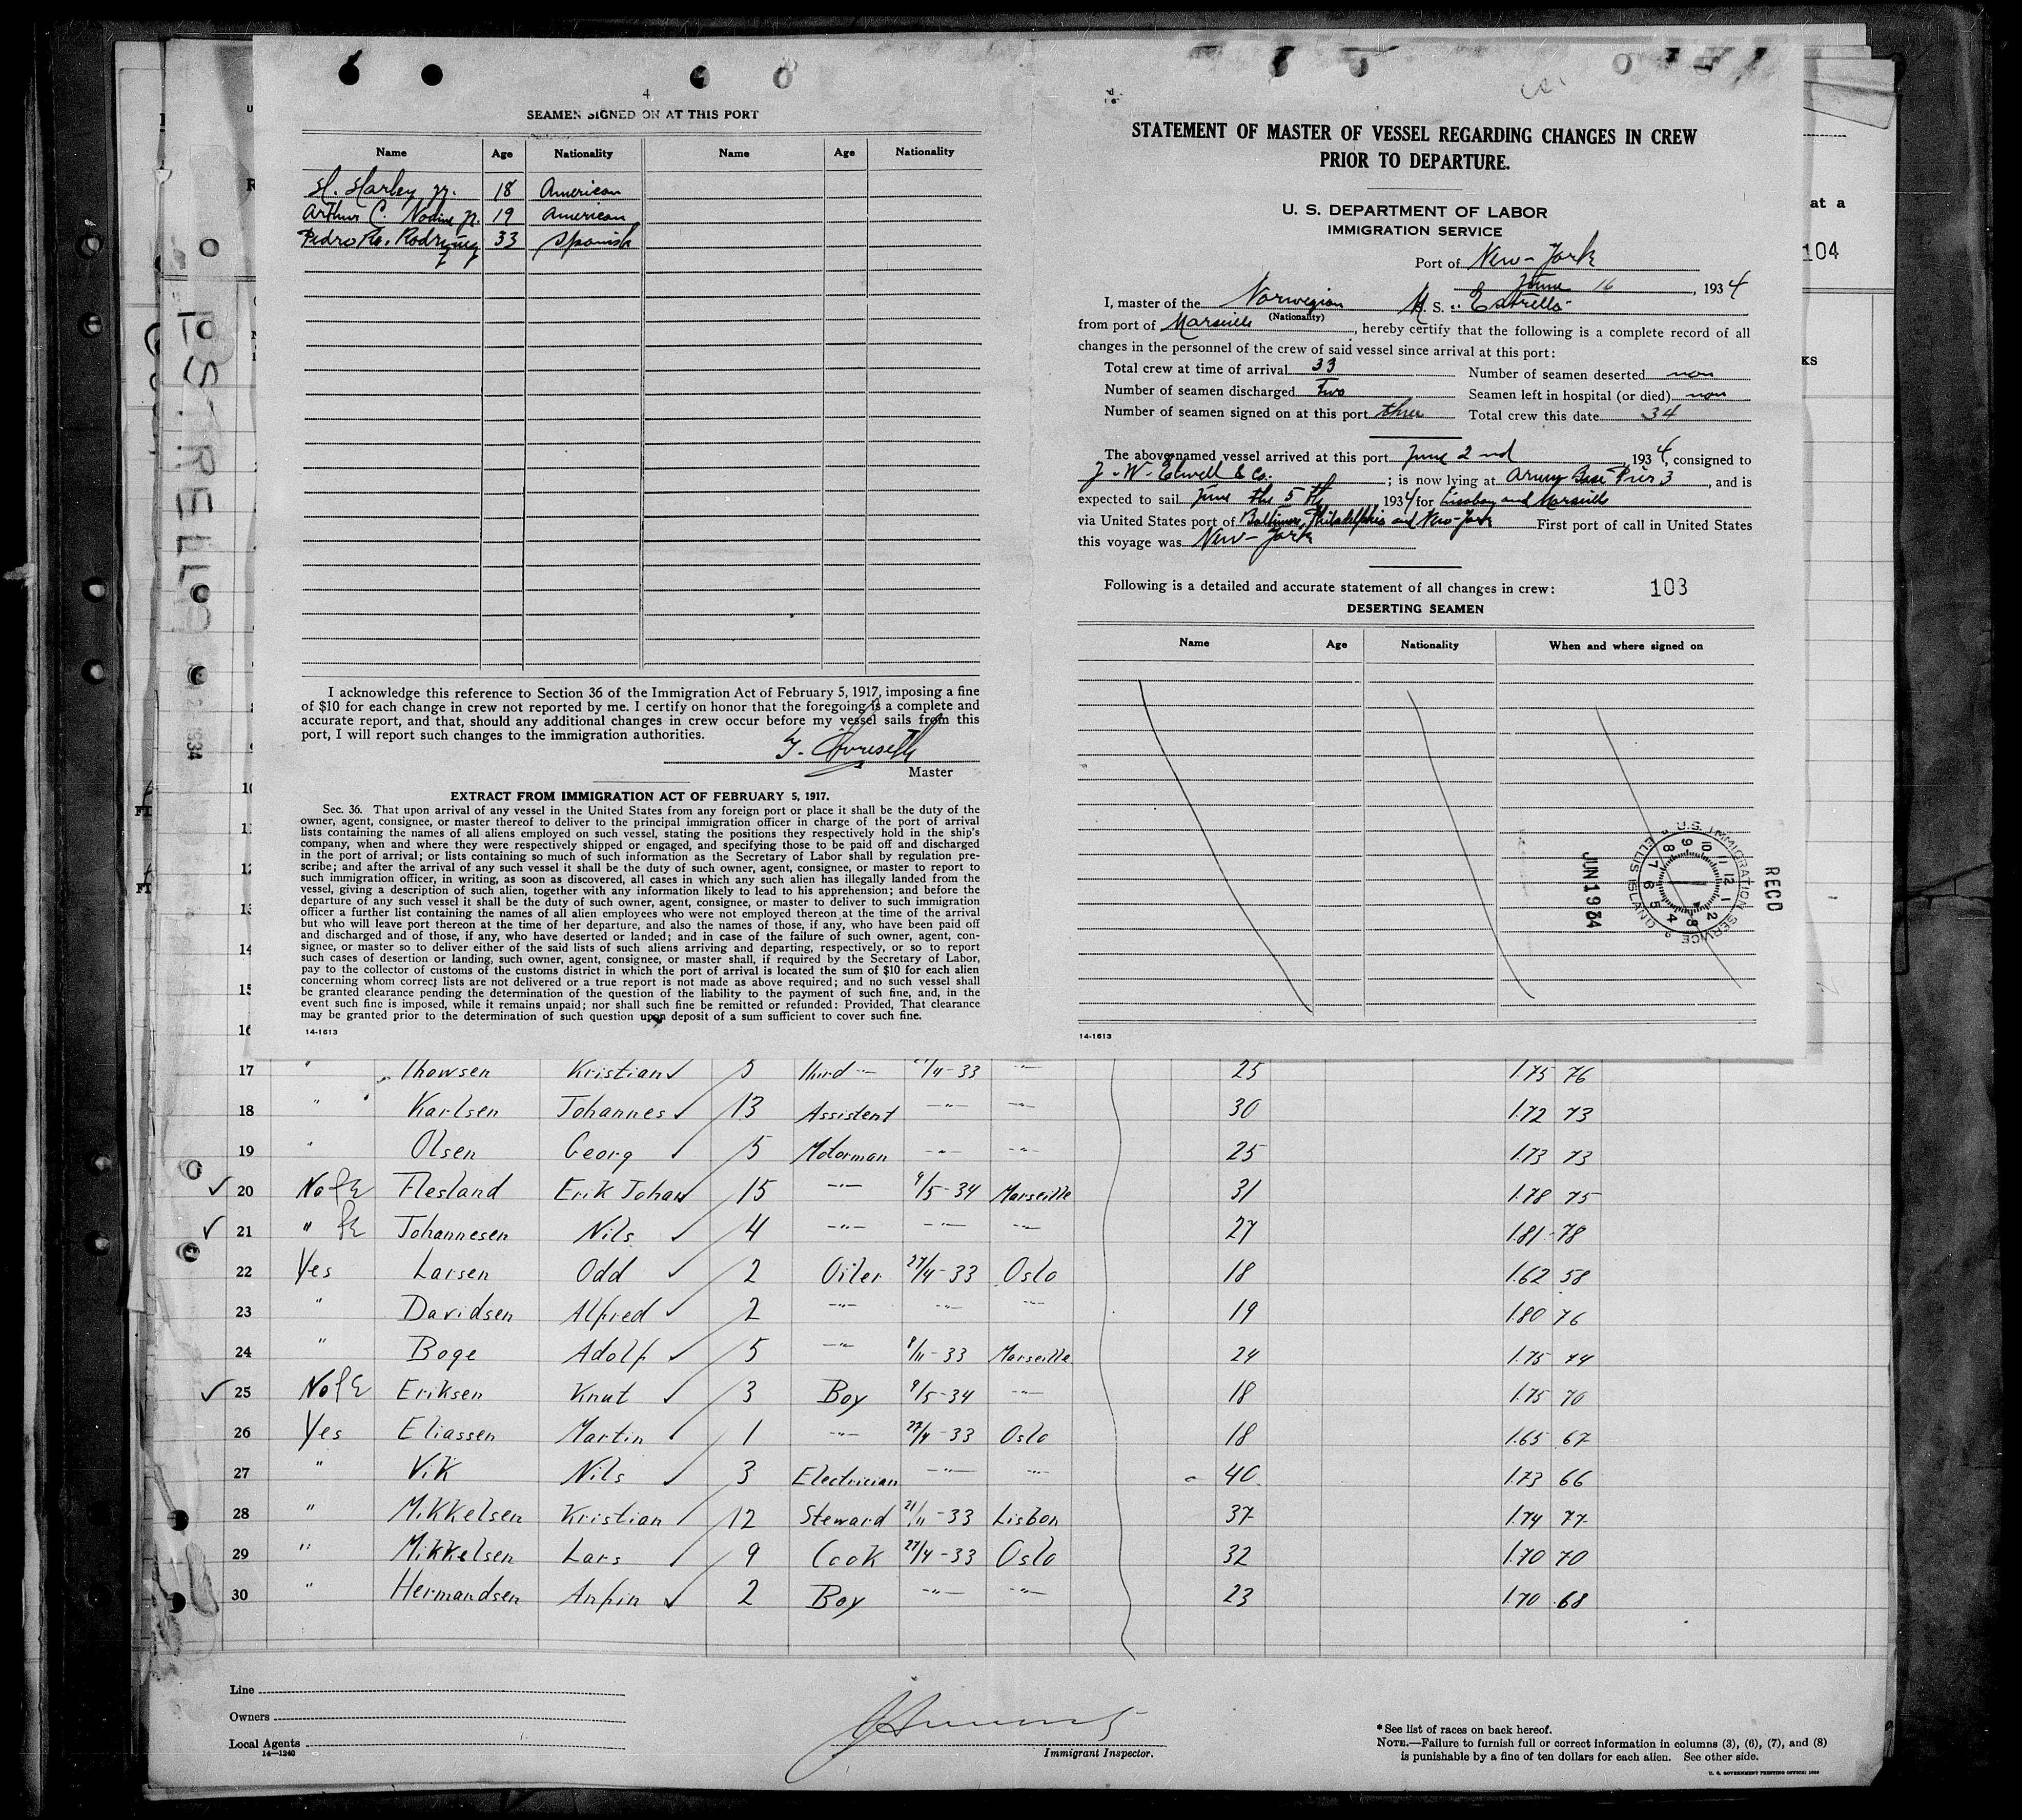 4
SEAMEN SIGNED ON AT THIS PORT
Name Age Nationality Name Age Nationality
H. Harley jr. 18 American
Arthur C. Nodine Jr. 19 American
Pedro Rodriguez 33 Spanish
I acknowledge this reference to Section 36 of the Immigration Act of February 5, 1917, imposing a fine
of $10 for each change in crew not reported by me. I certify on honor that the foregoing is a complete and
accurate report, and that, should any additional changes in crew occur before my vessel sails from this
port, I will report such changes to the immigration authorities.
Master
EXTRACT FROM IMMIGRATION ACT OF FEBRUARY 5, 1917.
Sec. 36. That upon arrival of any vessel in the United States from any foreign port or place it shall be the duty of the
owner, agent, consignee, or master thereof to deliver to the principal immigration officer in charge of the port of arrival
lists containing the names of all aliens employed on such vessel, stating the positions they respectively hold in the ship's
company, when and where they were respectively shipped or engaged, and specifying those to be paid off and discharged
in the port of arrival; or lists containing so much of such information as the Secretary of Labor shall by regulation pre-
scribe; and after the arrival of any such vessel it shall be the duty of such owner, agent, consignee, or master to report to
such immigration officer, in writing, as soon as discovered, all cases in which any such alien has illegally landed from the
vessel, giving a description of such alien, together with any information likely to lead to his apprehension; and before the
departure of any such vessel it shall be the duty of such owner, agent, consignee, or master to deliver to such immigration
officer a further list containing the names of all alien employees who were not employed thereon at the time of the arrival
but who will leave port thereon at the time of her departure, and also the names of those, if any, who have been paid off
and discharged and of those, if any, who have deserted or landed; and in case of the failure of such owner, agent, con-
signee, or master so to deliver either of the said lists of such aliens arriving and departing, respectively, or so to report
such cases of desertion or landing, such owner, agent, consignee, or master shall, if required by the Secretary of Labor,
pay to the collector of customs of the customs district in which the port of arrival is located the sum of $10 for each alien
concerning whom correct lists are not delivered or a true report is not made as above required; and no such vessel shall
be granted clearance pending the determination of the question of the liability to the payment of such fine, and, in the
event such fine is imposed, while it remains unpaid; nor shall such fine be remitted or refunded: Provided, That clearance
may be granted prior to the determination of such question upon deposit of a sum sufficient to cover such fine.
14-1613
STATEMENT OF MASTER OF VESSEL REGARDING CHANGES IN CREW
PRIOR TO DEPARTURE.
U. S. DEPARTMENT OF LABOR
IMMIGRATION SERVICE
Port of New-York
June 16, 1934
I, master of the Norwegian M. S. "Estrella"
(Nationality)
from port of Marseille, hereby certify that the following is a complete record of all
changes in the personnel of the crew of said vessel since arrival at this port:
Total crew at time of arrival 33 Number of seamen deserted non
Number of seamen discharged Two Seamen left in hospital (or died) non
Number of seamen signed on at this port three Total crew this date 34
The above named vessel arrived at this port June 2nd, 1934, consigned to
J. W. Elwell & Co.; is now lying at Army Base Pier 3, and is
expected to sail June the 5th, 1934 for Lissabon and Marseille
via United States port of Baltimore, Philadelphia and New-York First port of call in United States
this voyage was New-York
Following is a detailed and accurate statement of all changes in crew: 103
DESERTING SEAMEN
Name Age Nationality When and where signed on
U.S. IMMIGRATION SERVICE ELLIS ISLAND
RECD
JUN 1 9 34
14-1613
at a
104
KS
ESTRELLA
1934
10
11
12
13
14
15
16
17 " Thowsen Kristian 5 Third -"- /4-33 -"- 25 1.75 76
18 " Karlsen Johannes 13 Assistent -"- -"- 30 1.72 73
19 " Olsen Georg 5 Motorman -"- -"- 25 1.73 73
20 No Flesland Erik Johan 15 -"- 9/5-34 Marseille 31 1.78 75
21 " Johannesen Nils 4 -"- -"- -"- 27 1.81 78
22 Yes Larsen Odd 2 Oiler 27/4-33 Oslo 18 1.62 58
23 " Davidsen Alfred 2 -"- -"- -"- 19 1.80 76
24 " Boge Adolf 5 -"- 8/11-33 Marseille 24 1.75 74
25 No Eriksen Knut 3 Boy 9/5-34 -"- 18 1.75 70
26 Yes Eliassen Martin 1 -"- 27/4-33 Oslo 18 1.65 67
27 " Vik Nils 3 Electrician -"- -"- 40 1.73 66
28 " Mikkelsen Kristian 12 Steward 21/11-33 Lisbon 37 1.74 77
29 " Mikkelsen Lars 9 Cook 27/4-33 Oslo 32 1.70 70
30 " Hermandsen Anfin 2 Boy -"- -"- 23 1.70 68
Line
Owners
Local Agents
14—1240
Immigrant Inspector.
*See list of races on back hereof.
NOTE.—Failure to furnish full or correct information in columns (3), (6), (7), and (8)
is punishable by a fine of ten dollars for each alien. See other side.
U. S. GOVERNMENT PRINTING OFFICE: